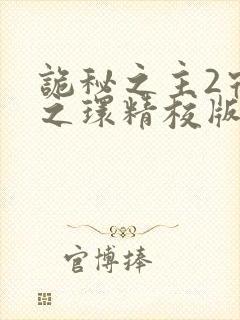 詭秘之主2
之環精校版
官博捧